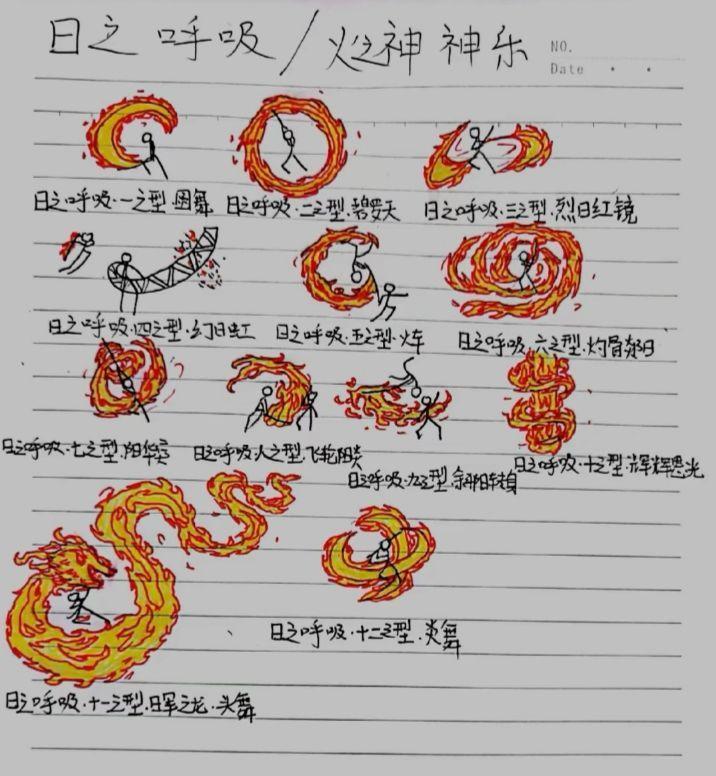 日之呼吸/火之神神乐
NO.
Date
日之呼吸·一之型·圆舞
日之呼吸·二之型·碧罗天
日之呼吸·三之型·烈日红镜
日之呼吸·四之型·幻日虹
日之呼吸·五之型·火车
日之呼吸·六之型·灼骨炎阳
日之呼吸·七之型·阳华突
日之呼吸·八之型·飞轮阳炎
日之呼吸·九之型·斜阳转身
日之呼吸·十之型·辉辉恩光
日之呼吸·十一之型·日晕之龙·头舞
日之呼吸·十二之型·炎舞